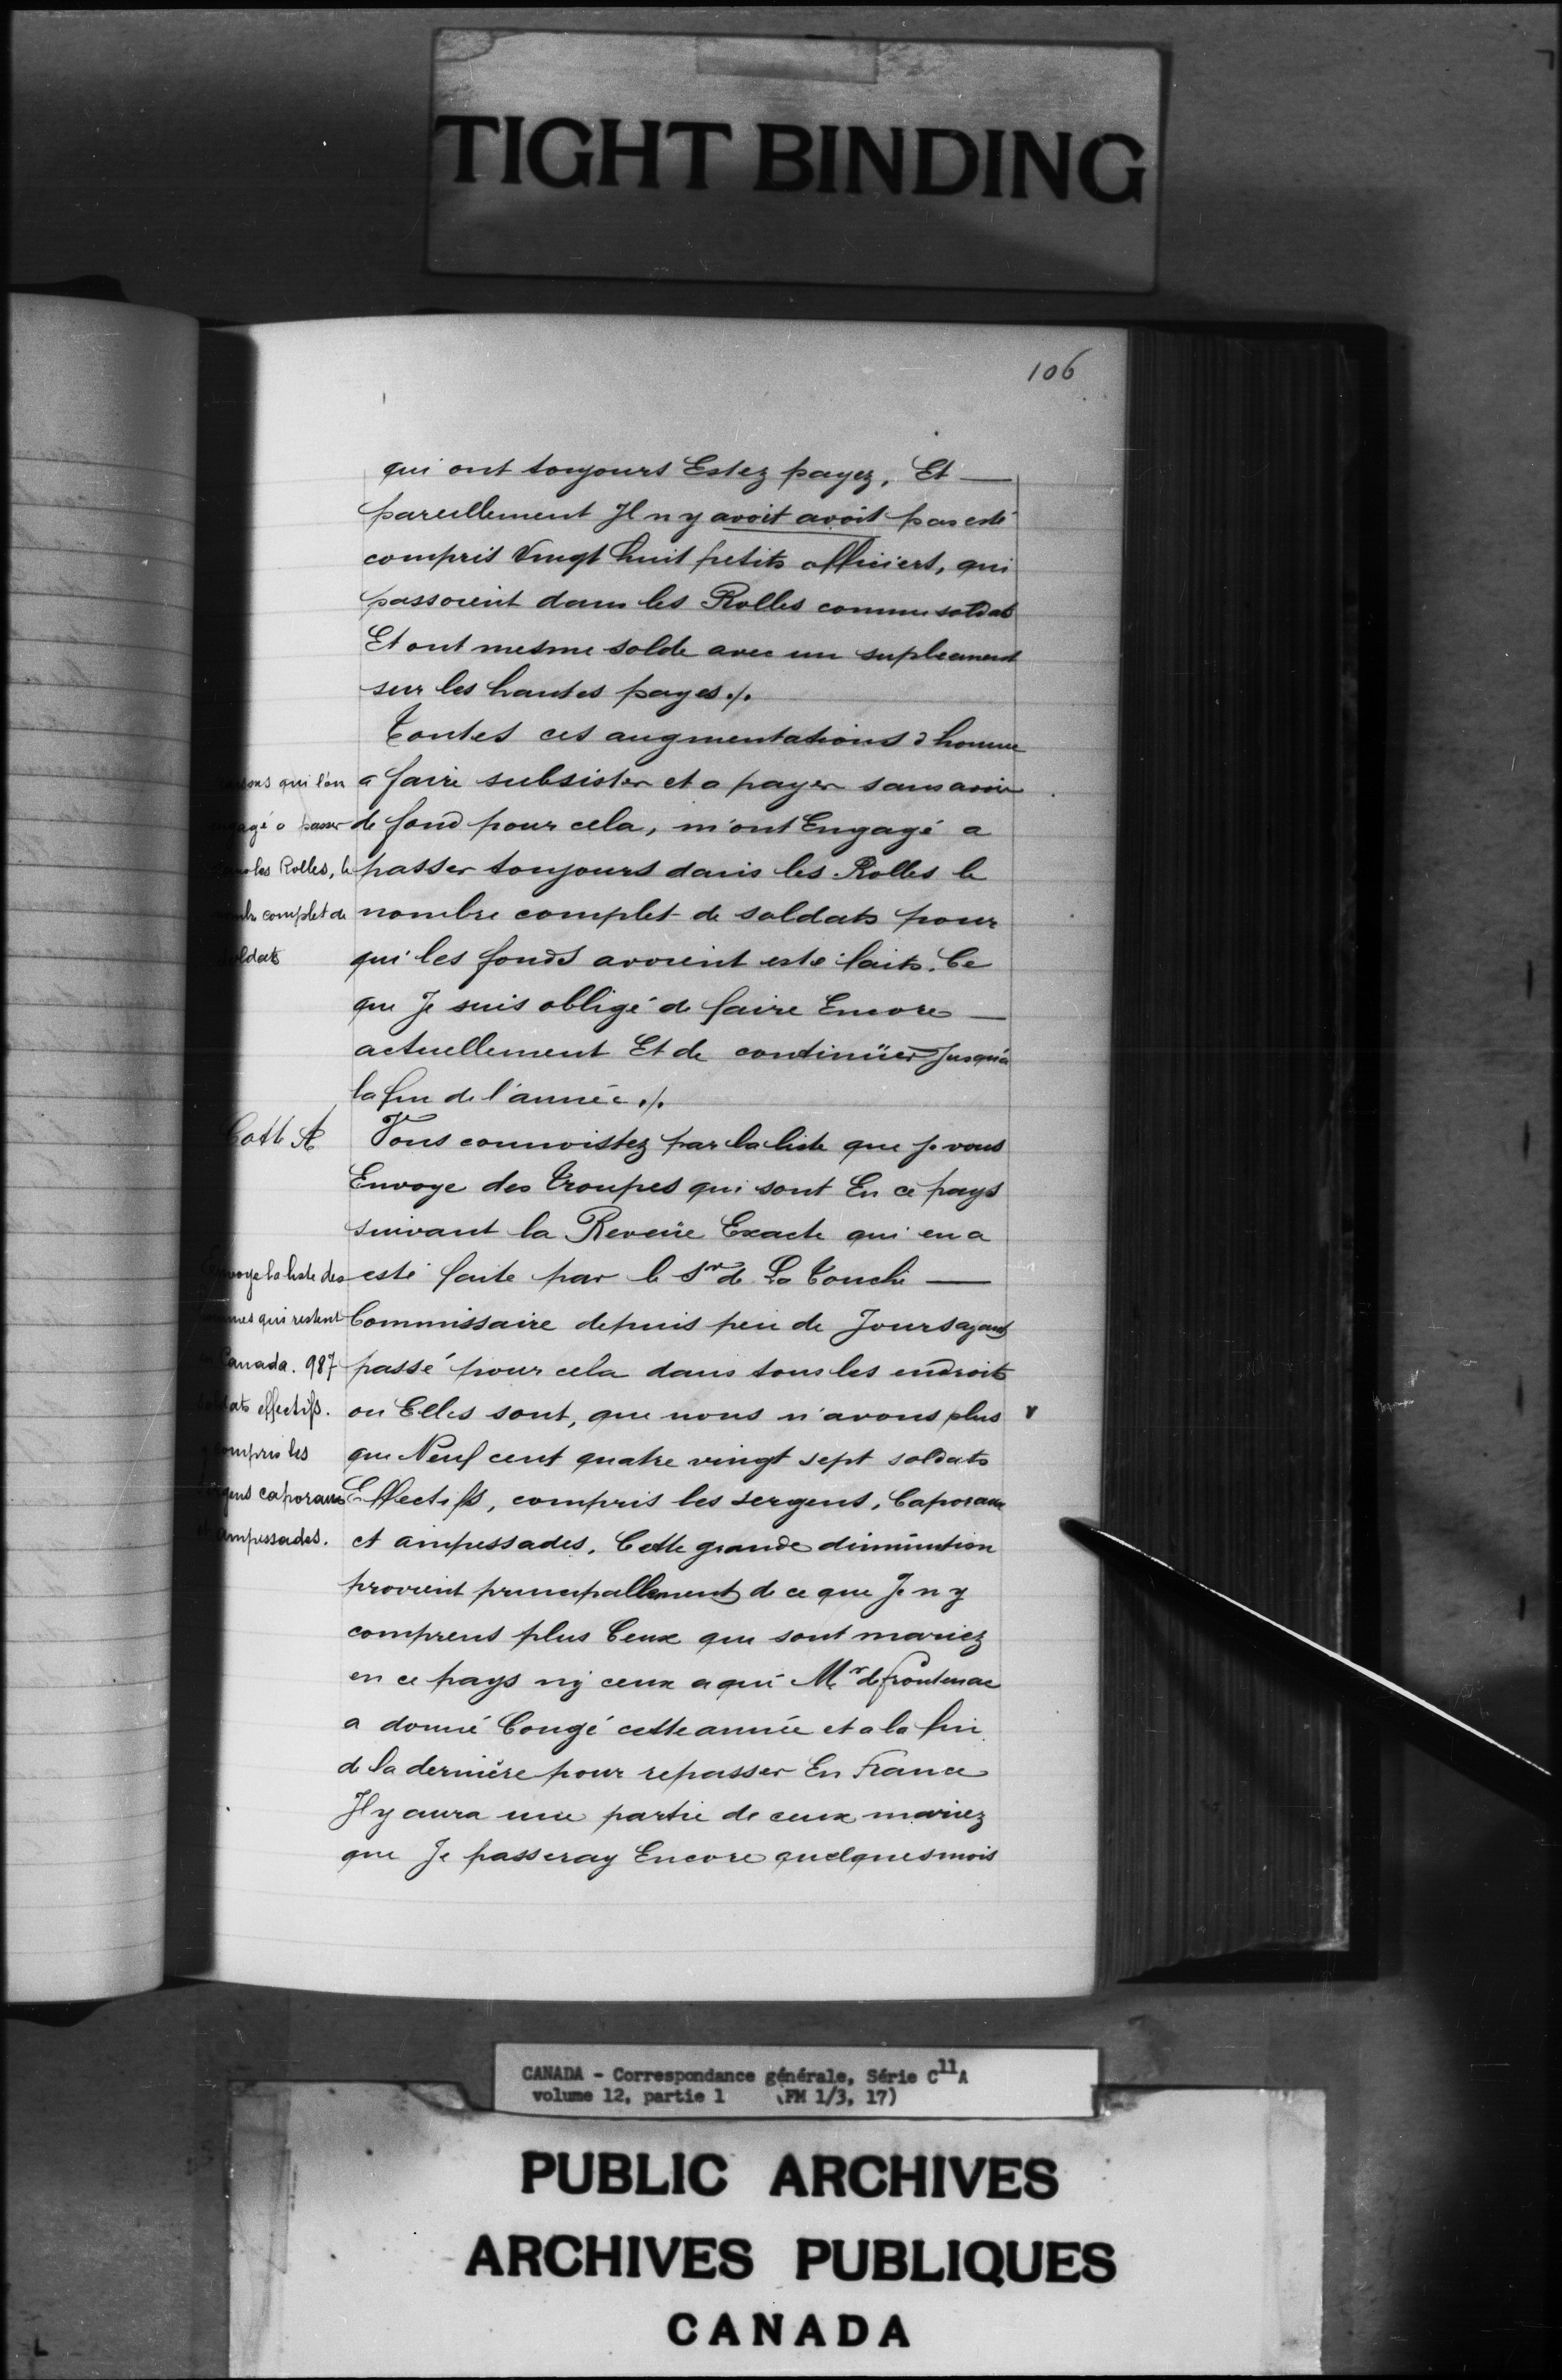 TIGHT BINDING
106
qui ont toujours Estez payez, Et —
pareillement Il n y avoit avoit pas esté
compris Vingt huit petits officiers, qui
passoient dans les Rolles comme soldats
Et ont mesme solde avec un supleement
sur les hautes payes ./.
Toutes ces augmentations d homme
a faire subsister et a payer sans avoir
de fond pour cela, m'ont Engagé a
passer toujours dans les Rolles le
nombre complet de soldats pour
qui les fonds avoient esté faits. Ce
que Je suis obligé de faire Encore —
actuellement Et de continüer Jusqu'a
la fin de l'année ./.
qui l'on
a passer
les Rolles, le
complet de
soldats
Cotte A
Vous connoistez par la liste que je vous
Envoye des Troupes qui sont En ce pays
suivant la Reveüe Exacte qui en a
esté faite par le Sr de La Touche —
Commissaire depuis peu de Jours ayant
passé pour cela dans tous les endroits
ou Elles sont, que nous n'avons plus
que Neuf cent quatre vingt sept soldats
Effectifs, compris les sergens, Caporaux
et ampessades. Cette grande diminution
provient principallement de ce que Je n y
comprens plus Ceux qui sont mariez
en ce pays ny ceux a qui Mr de frontenac
a donné Congé cette année et a la fin
de la dernière pour repasser En France
Il y aura une partie de ceux mariez
que Je passeray Encore quelques mois
Envoye la liste des
qui restent
en Canada. 987
soldats effectifs.
y compris les
sergens caporaux
et ampessades.
CANADA - Correspondance générale, Série C11A
volume 12, partie 1 (FM 1/3, 17)
PUBLIC ARCHIVES
ARCHIVES PUBLIQUES
CANADA